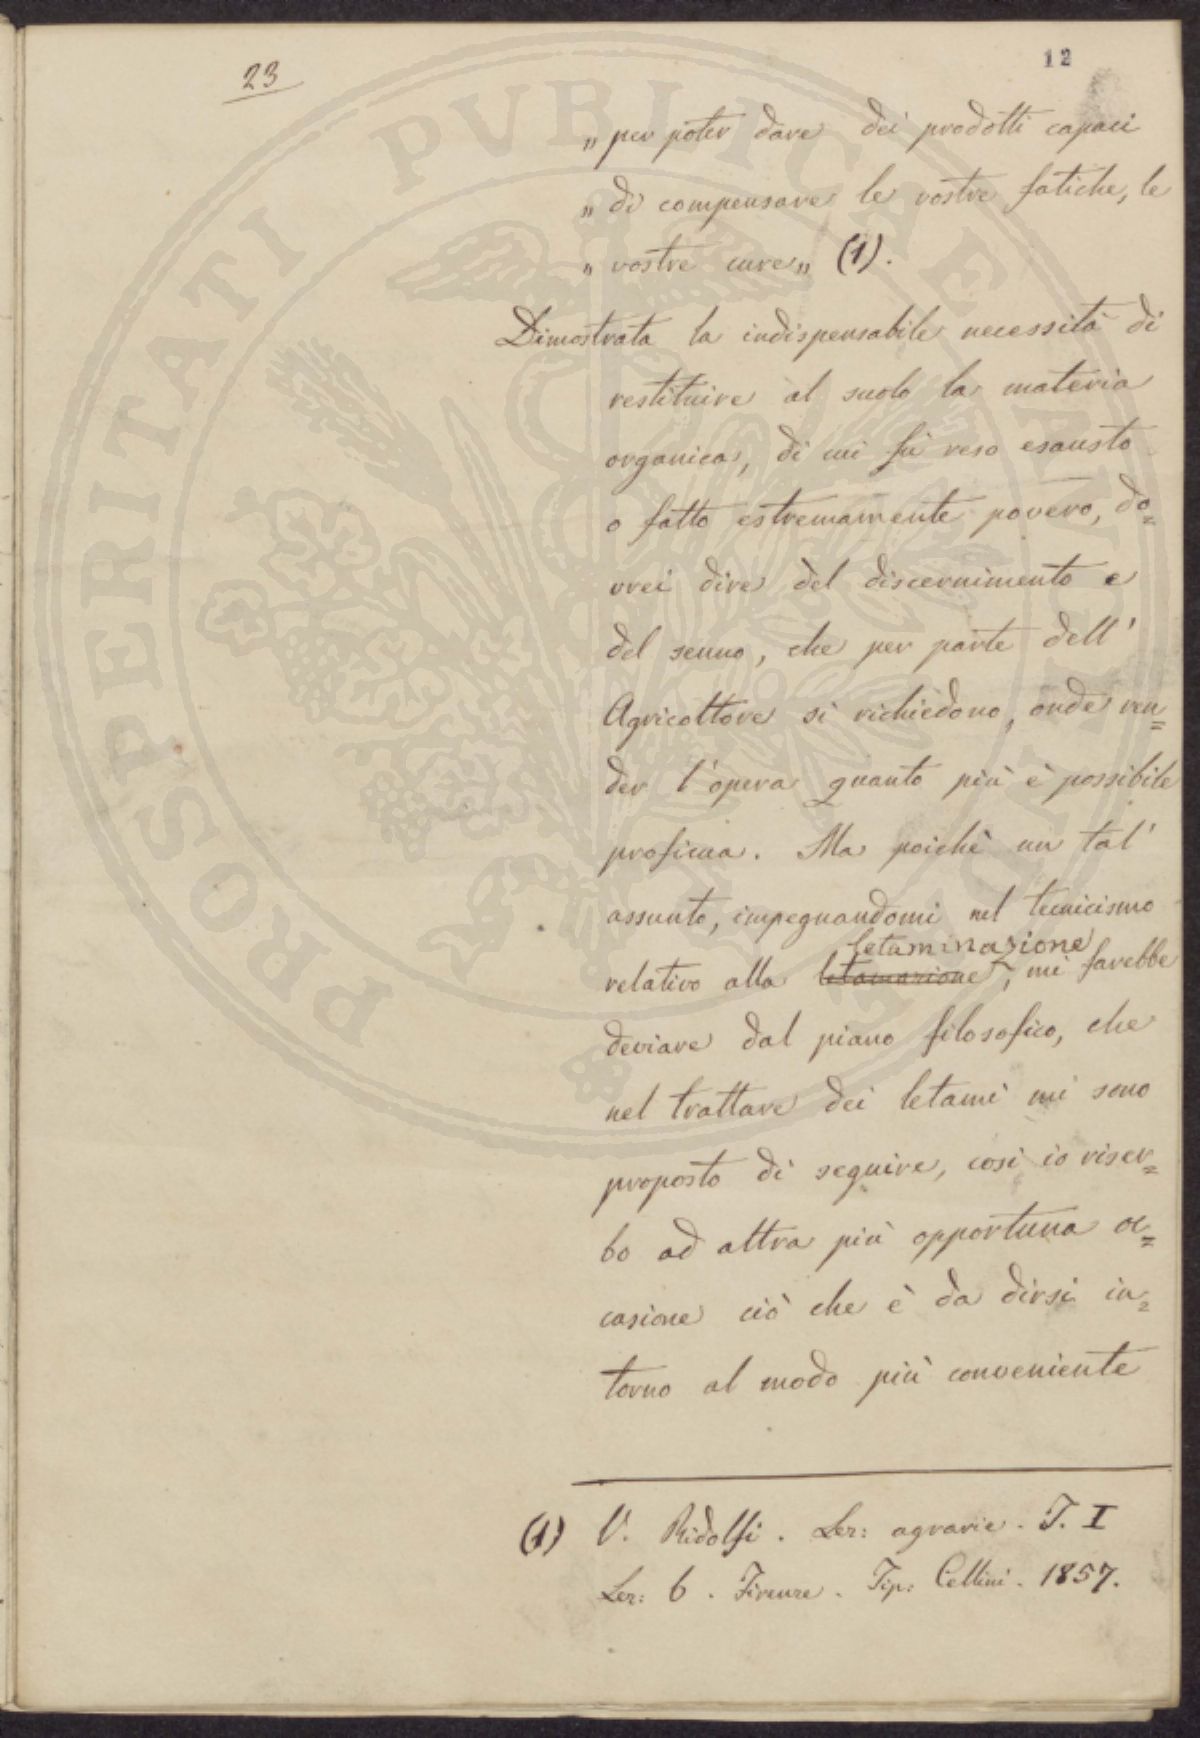 23
12
„ per poter dare dei prodotti capaci
„ di compensare le vostre fatiche, le
„ vostre cure „ (1).
Dimostrata la indispensabile necessità di
restituire al suolo la materia
organica, di cui fù reso esausto
o fatto estremamente povero, do=
vrei dire del discernimento e
del senno, che per parte dell'
Agricoltore si richiedono, onde ren=
der l'opera quanto più è possibile
proficua. Ma poichè un tal'
assunto, impegnandomi nel tecnicismo
letaminazione
relativo alla letamazione, mi farebbe
deviare dal piano filosofico, che
nel trattare dei letami mi sono
proposto di seguire, così io riser=
bo ad altra più opportuna oc=
casione ciò che è da dirsi in=
torno al modo più conveniente
(1) V. Ridolfi. Lez: agrarie. T. I
Lez: 6. Firenze. Tip: Cellini. 1857.
PROSPERITATI PVBLICAE AVGENDAE